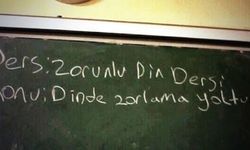 Ders: Zorunlu Din Dersi
Konu: Dinde zorlama yoktu